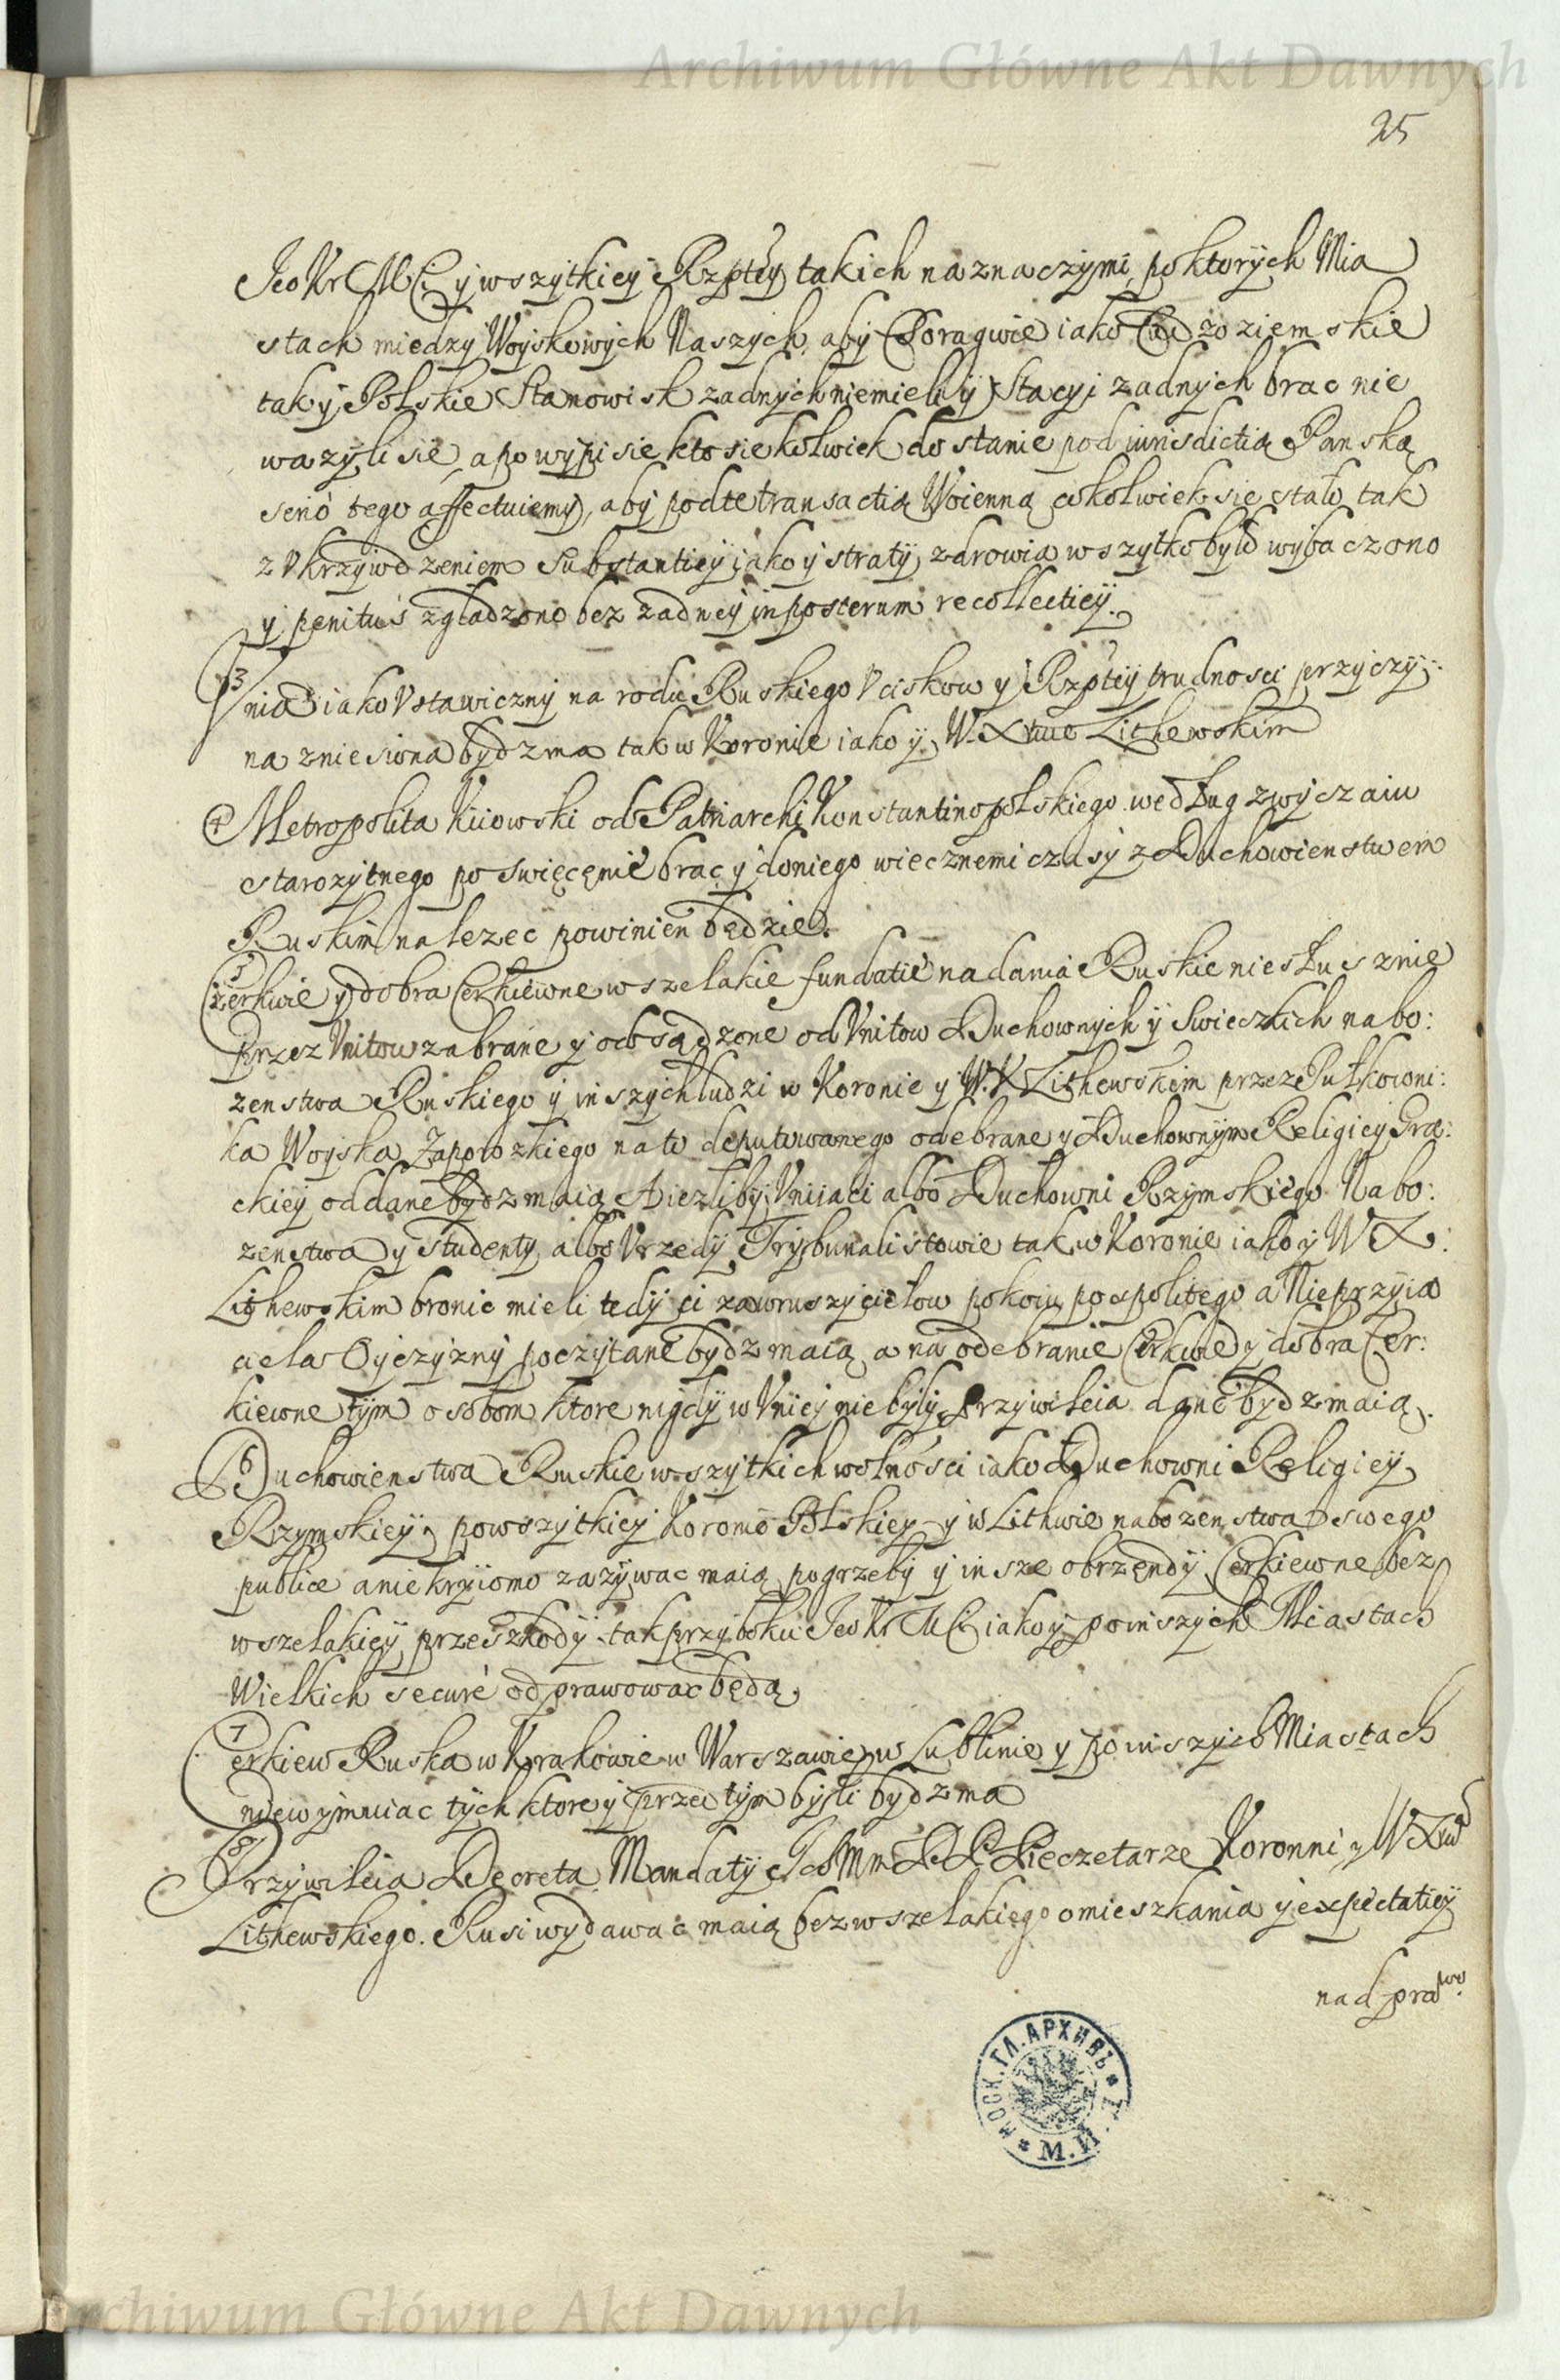 Archiwum Główne Akt Dawnych
25
Jeo Kr MCi y wszytkiey Rzptey takich naznaczymi, po ktorych Mia
stach miedzy Woyskowych Naszych, aby Choragwie iako Cudzoziemskie
tak y Polskie Stanowisk zadnych niemieli y Stacyi zadnych brac nie
wazyli sie a po wypisie kto siekolwiek dostanie pod iurisdictią Panską
tego affectuiemy, aby podte transactią Woienną cokolwiek się stało tak
z Vkrzywdzeniem Substantiey iako y straty zdrowia wszytko było wybaczono
y penitus zgładzono bez zadney inposterum recollectiey.
3
Vnia iako Vstawiczny narodu Ruskiego Vciskow y Rzptey trudnosci przyczy:
na zniesiona bydz ma tak w Koronie iako y W. X twe Lithewskim
4 Metropolita Kiiowski od Patriarchi Konstantinopolskiego według zwyczaiu
starozytnego poswięcęnie brac y doniego wiecznemi czasy z Duchowienstwem
Ruskim nalezec powinien będzie.
5
Czerkwie y dobra Cerkiewne wszelakie fundatie nadania Ruskie niesłusznie
Przez Vnitow zabrane y odsądzone od Vnitow Duchownych y Swieczkich nabo:
zenstwa Ruskiego y inszych ludzi w Koronie y W. X Lithewskim przez Pułkowni:
ka Woyska Zaporozkiego na to deputowanego odebrane y Duchownym Religiey Grae:
ckiey oddane bydz maią A iezliby Vniiaci albo Duchowni Rzymskiego Nabo:
zenstwa y studenty, albo Vrzedy Trybunalistowie tak w Koronie iako y W X:
Lithewskim bronic mieli tedy ci zawruszycielow pokoiu pospolitego a Nieprzyia
ciela Oyczyzny poczytane bydz maią a na odebranie Cerkwie y dobra Cer:
kiewne tym osobom ktore nigdy w Vniey niebyly Przywileia dane bydz maią.
6
Duchowienstwa Ruskie wszytkich wolności iako Duchowni Religiey
Rzymskiey powszytkiey Koronie Polskiey y w Lithwie nabozenstwa swego
publice anie kryiomo zazywac maią pogrzeby y insze obrzendy Cerkiewne bez
wszelakiey przeszkody tak przy boku Jeo Kr MCi iako y poinszych Miastach
Wielkich secure odprawowac będą,
7
Cerkiew Ruska w Krakowie w Warszawie w Lublinie y poinszych Miastach
niewyimuiac tych ktore y przed tym byli bydz ma
8
Przywileia Decreta Mandaty Pieczetarze Koronni y W X wa
Lithewskiego. Rusi wydawac maią bez wszelakiego omieszkania y expectatiey
nad prawo.
МОСК. ГЛ. АРХИВЪ
М.И.Д.
Archiwum Główne Akt Dawnych